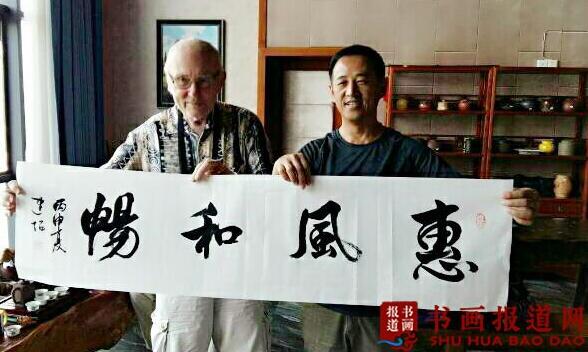 惠風和暢
丙申夏
书画报道
书画报道网
SHU HUA BAO DAO